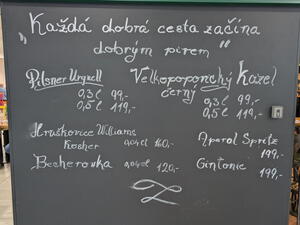 „Každá dobrá cesta začína
dobrým pivem"
Pilsner Urquell
0,3l 99,-
0,5l 119,-
Velkopoponský Kozel
černý
0,3l 99,-
0,5l 119,-
Hruškovice Williams
Kosher 0,04cl 160,-
Becherovka 0,04cl 120,-
Aperol Spritz
199,-
Gintonic
199,-